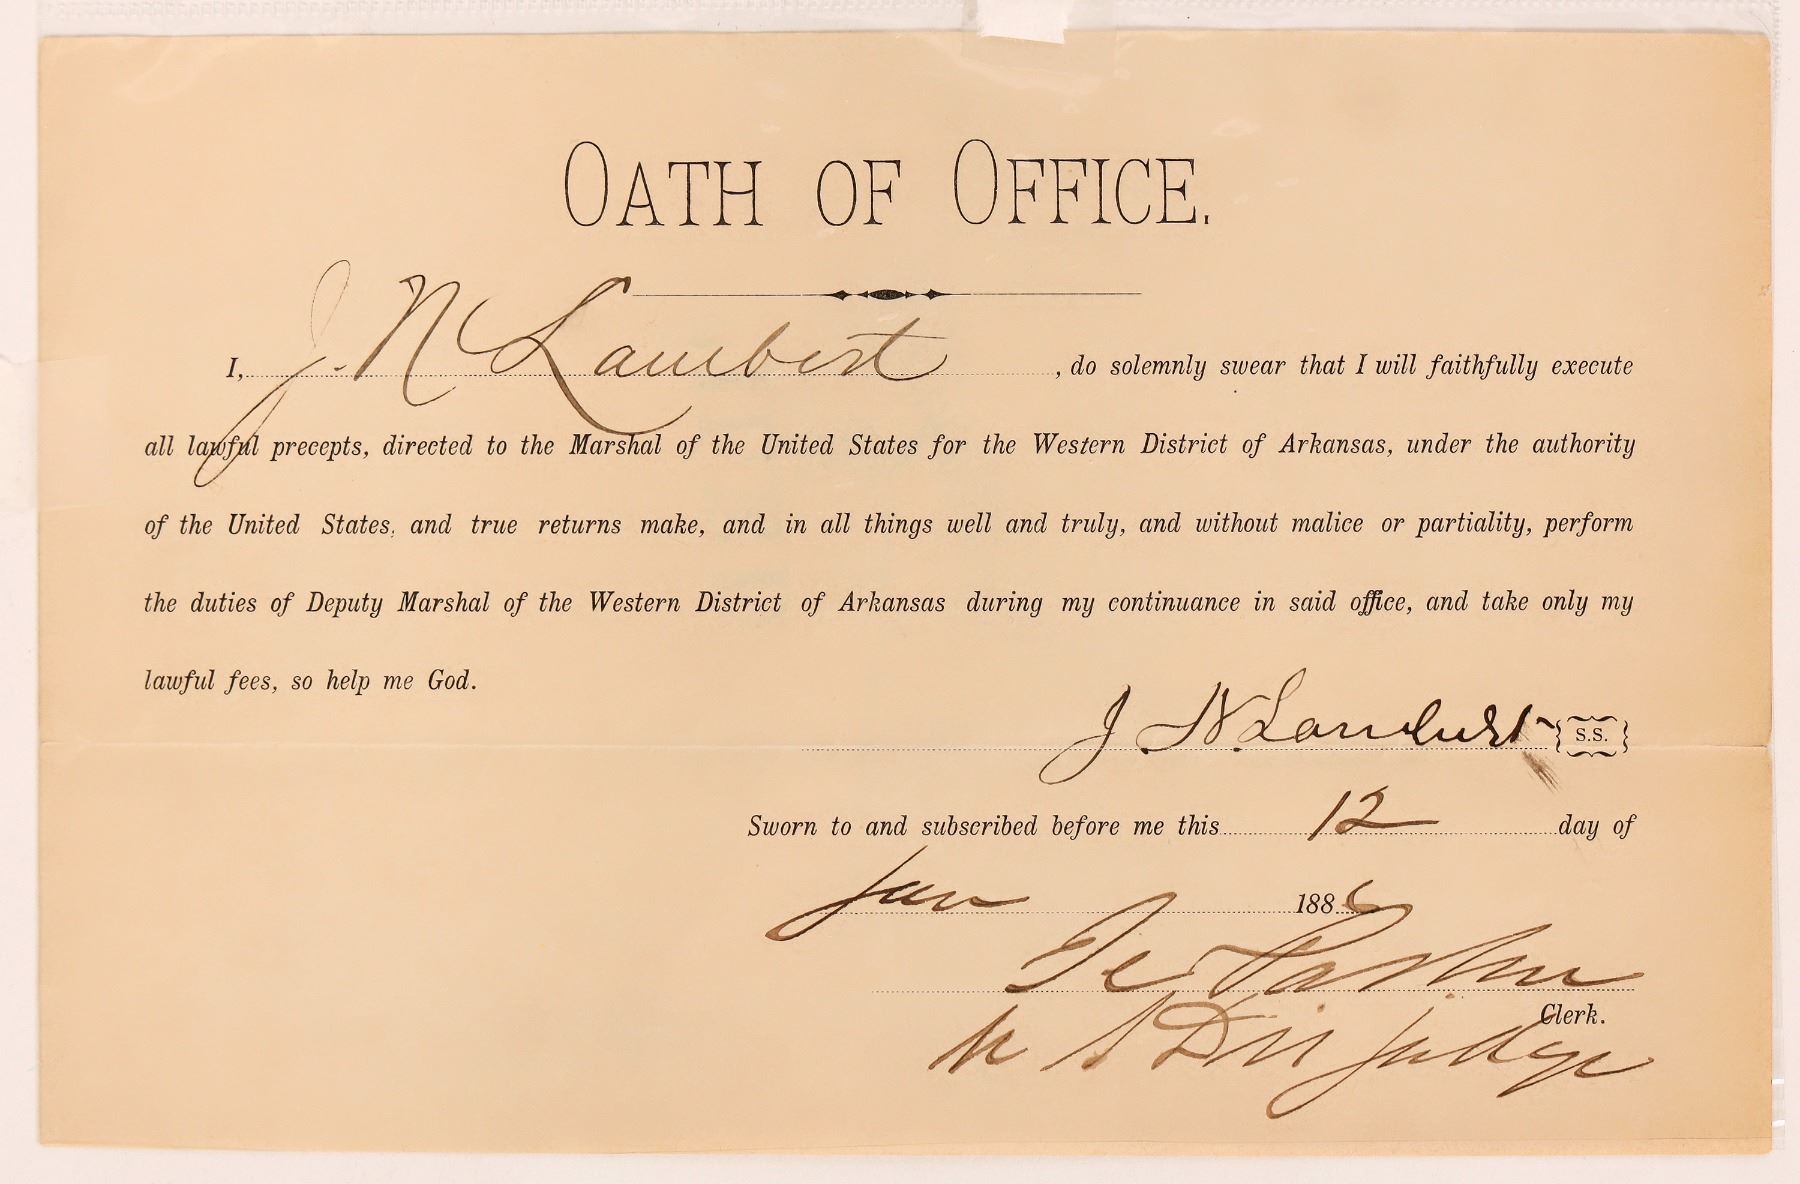 OATH OF OFFICE.
I, J. N Lambert, do solemnly swear that I will faithfully execute
all lawful precepts, directed to the Marshal of the United States for the Western District of Arkansas, under the authority
of the United States, and true returns make, and in all things well and truly, and without malice or partiality, perform
the duties of Deputy Marshal of the Western District of Arkansas during my continuance in said office, and take only my
lawful fees, so help me God.
J. N. Lambert S.S.
Sworn to and subscribed before me this 12 day of
Jan 1886
Parker
Clerk.
U S Dis Judge